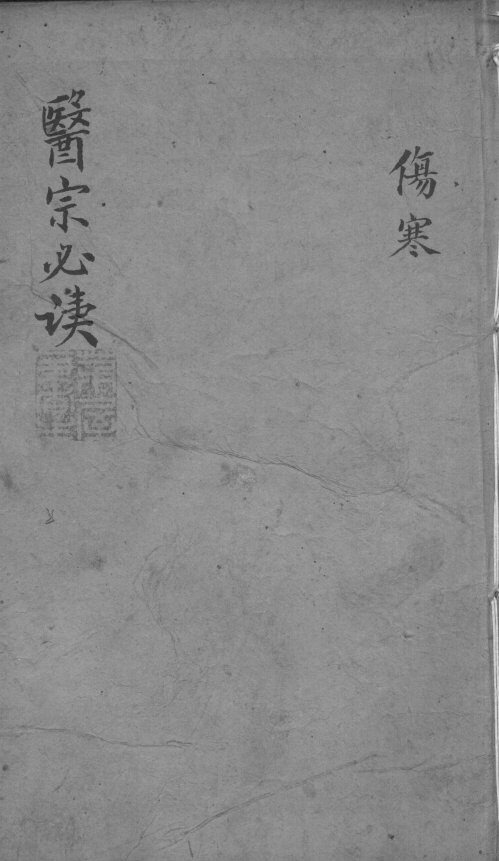 傷寒
醫宗必读